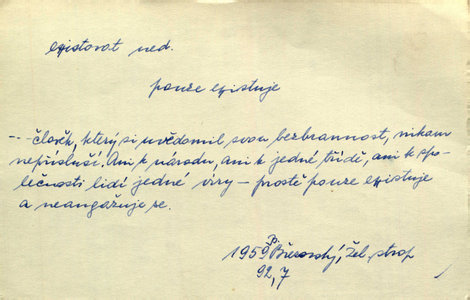 existovat ned.
pouze existuje
--- člověk, který si uvědomil svou bezbrannost, nikam
nepřísluší. Ani k národu, ani k jedné třídě, ani k spo-
lečnosti lidí jedné víry – prostě pouze existuje
a neangažuje se.
1959 P. Březovský, Žel. strop
92,7